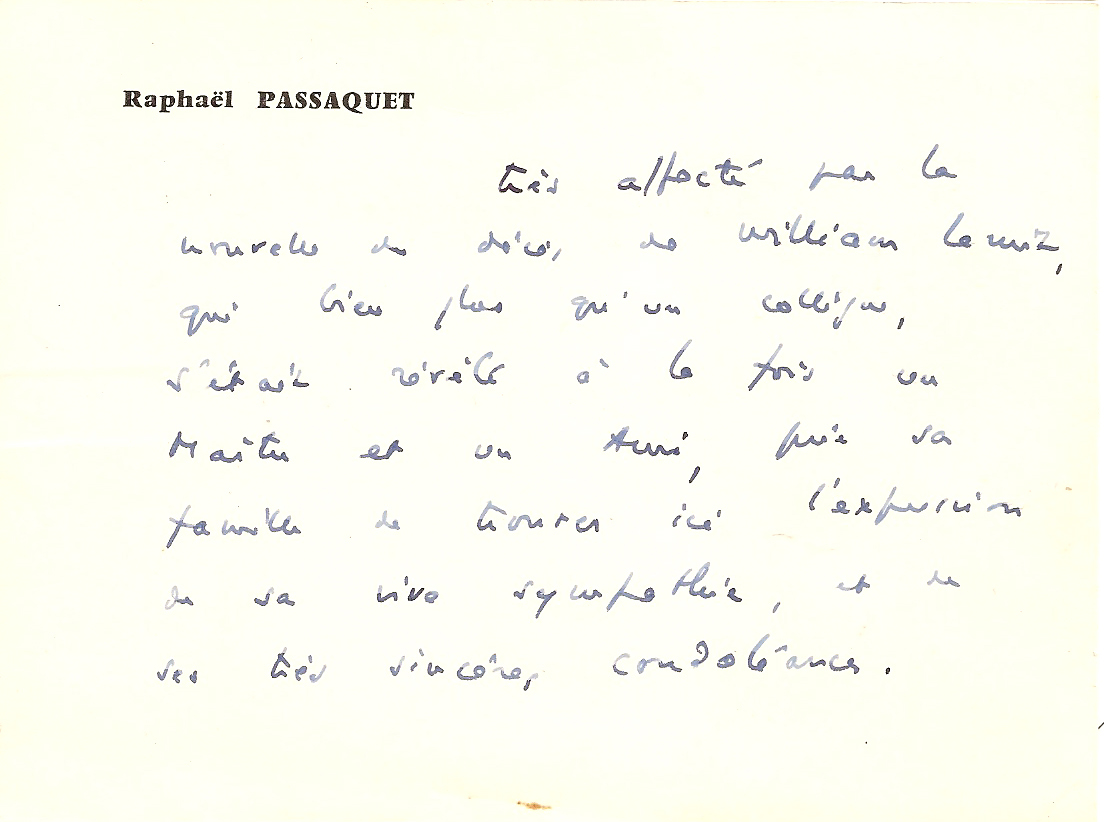 Raphaël PASSAQUET
très affecté par la
nouvelle du décès de William Lemit,
qui bien plus qu'un collègue,
s'était révélé à la fois un
Maître et un Ami, prie sa
famille de trouver ici l'expression
de sa vive sympathie, et de
ses très sincères condoléances.